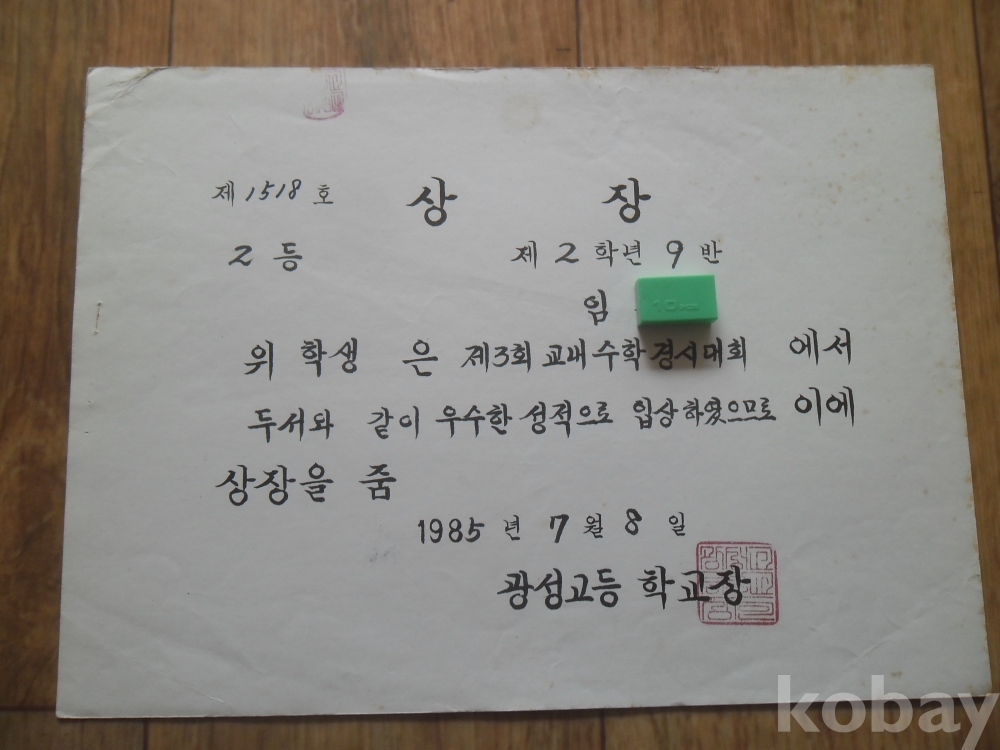 제 1518 호 상 장
2 등 제 2 학년 9 반
임
위 학생 은 제3회 교내 수학 경시대회 에서
두서와 같이 우수한 성적으로 입상하였으므로 이에
상장을 줌
1985 년 7 월 8 일
광성고등 학교장
kobay